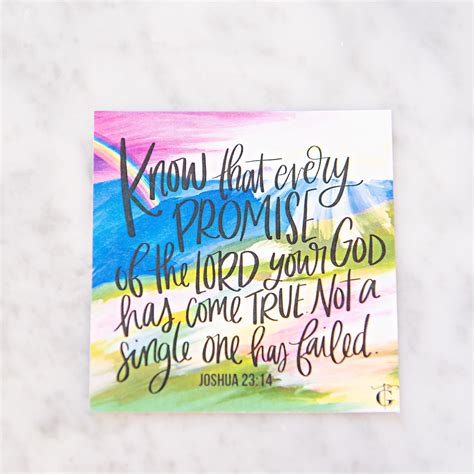 Know that every
PROMISE
of the LORD your GOD
has come TRUE. Not a
single one has failed.
JOSHUA 23:14